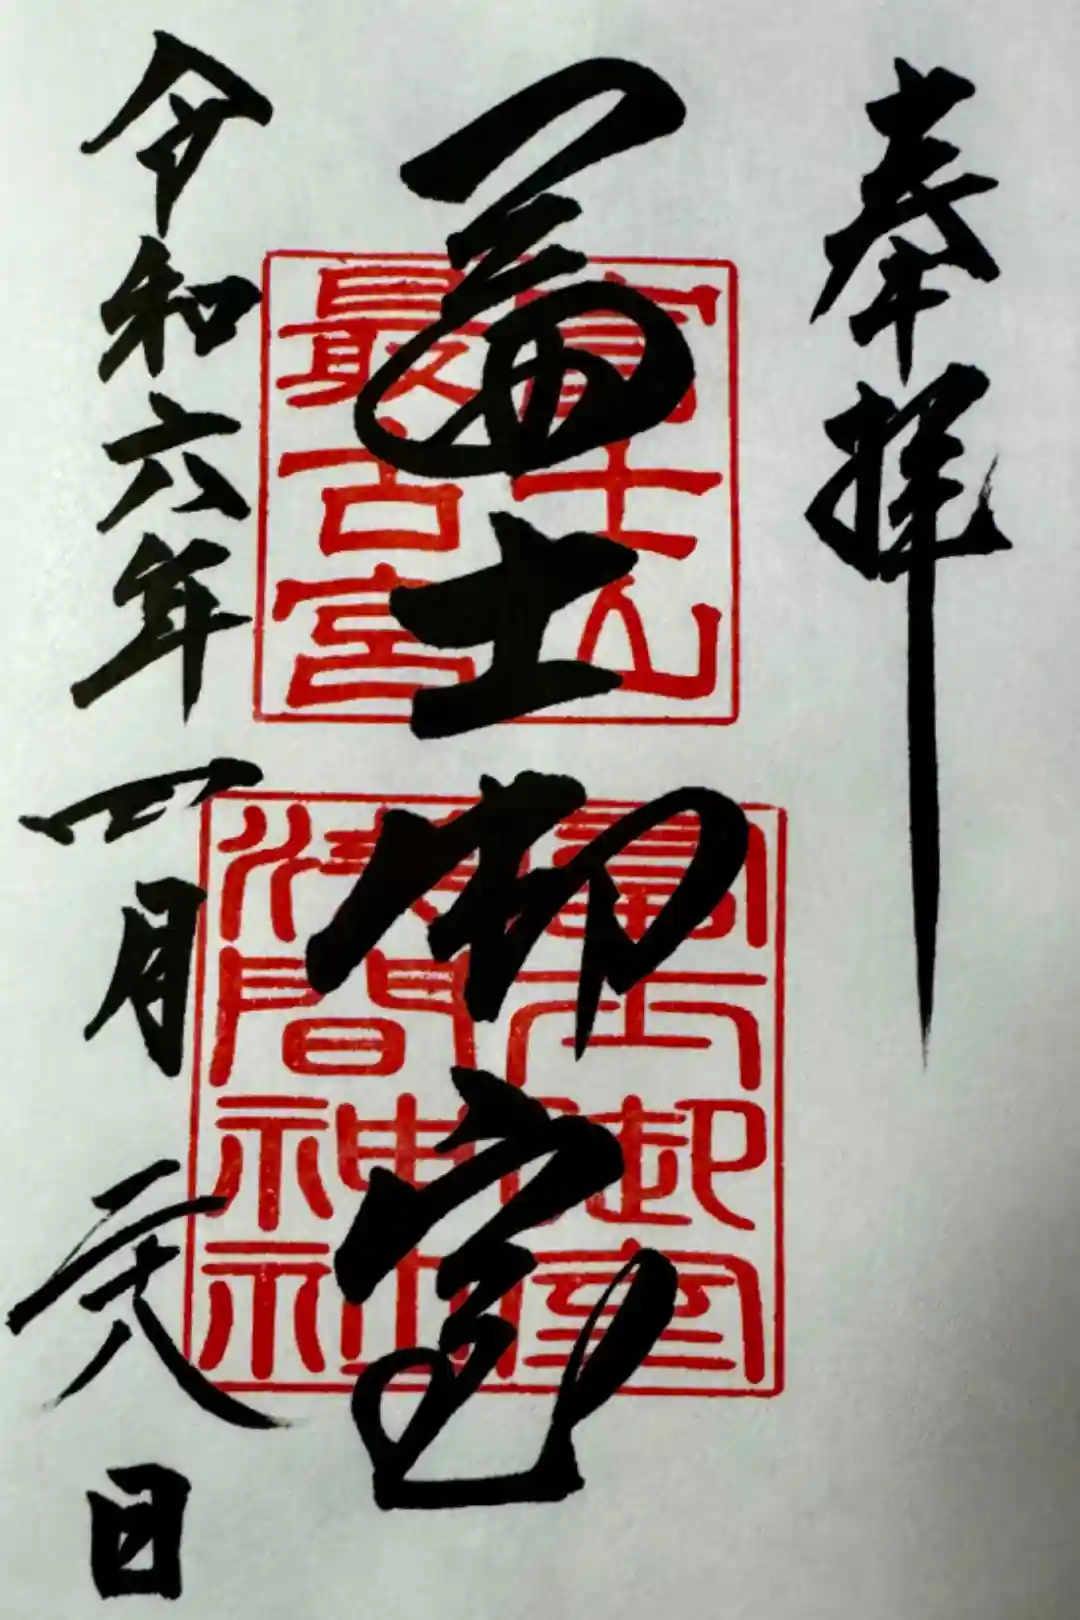 奉拝
富士山
最古宮
冨士御室
冨士御室
浅間神社
令和六年四月二十八日